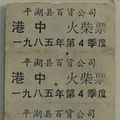 平湖县百貨公司
港中 火柴票
一九八五年第4季度
平湖县百貨公司
港中 火柴票
一九八五年第4季度
平湖县百貨公司